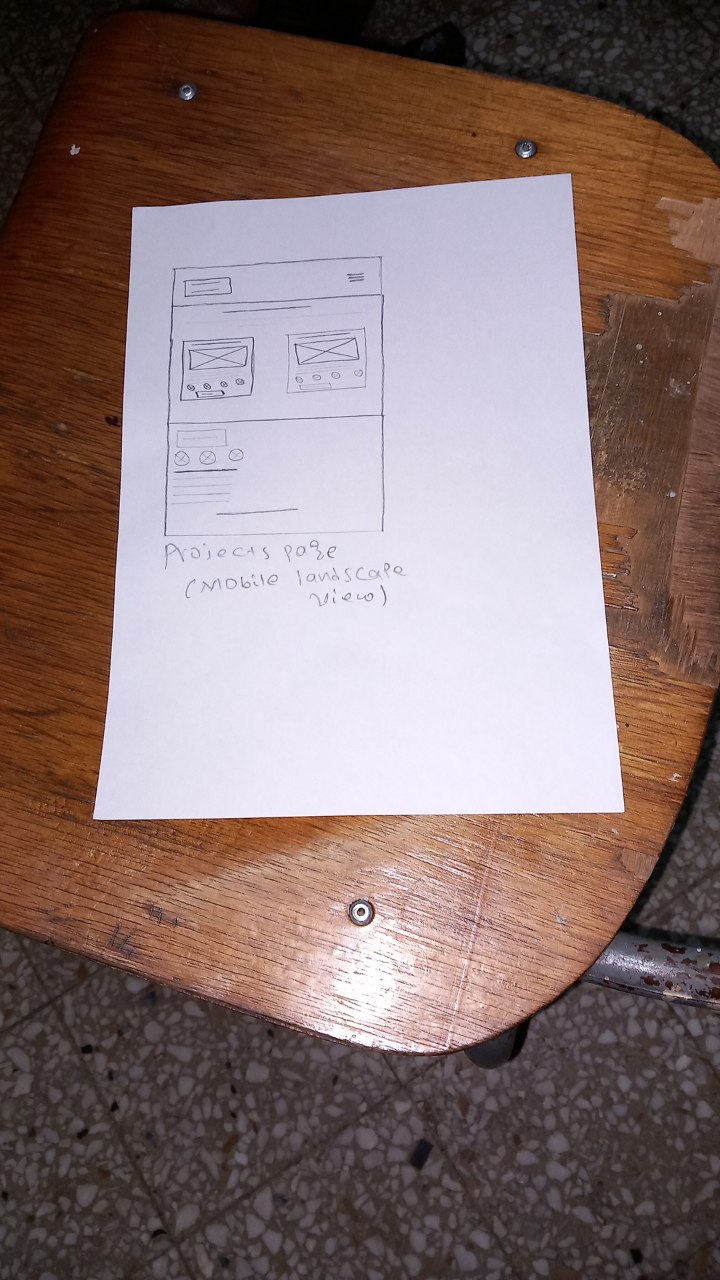 Projects page
(Mobile landscape
view)